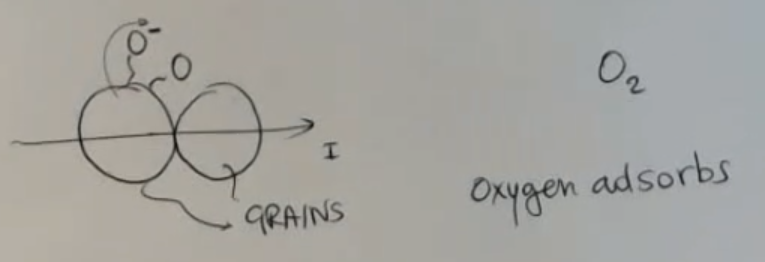 O⁻
O
I
GRAINS
O₂
Oxygen adsorbs